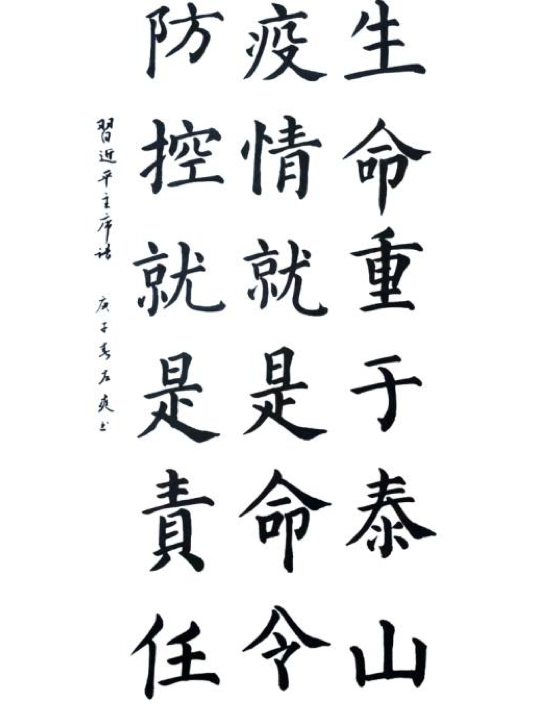 生命重于泰山
疫情就是命令
防控就是責任
習近平主席語 庚子春左爽书